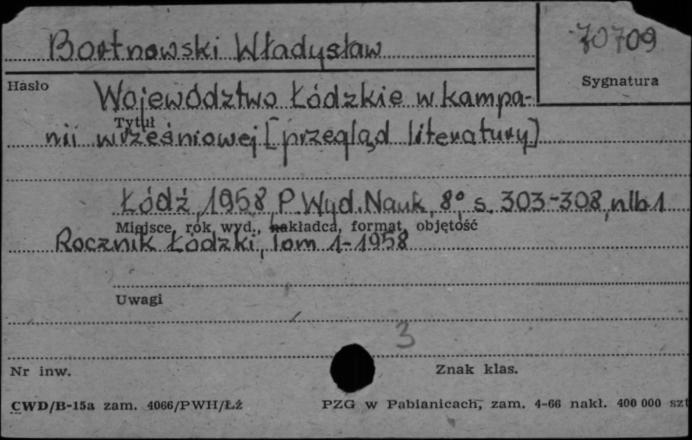 Bortnowski Władysław
70709
Hasło
Sygnatura
Województwo Łódzkie w kampa-
Tytuł
nii wrześniowej [przegląd literatury]
Łódź, 1958 P. Wyd. Nauk, 8° s. 303-308, nlb 1
Miejsce, rok, wyd., nakładca, format, objętość
Rocznik Łódzki, Tom 1-1958
Uwagi
3
Nr inw.
Znak klas.
CWD/B-15a zam. 4066/PWH/Łź
PZG w Pabianicach, zam. 4-66 nakł. 400 000 szt